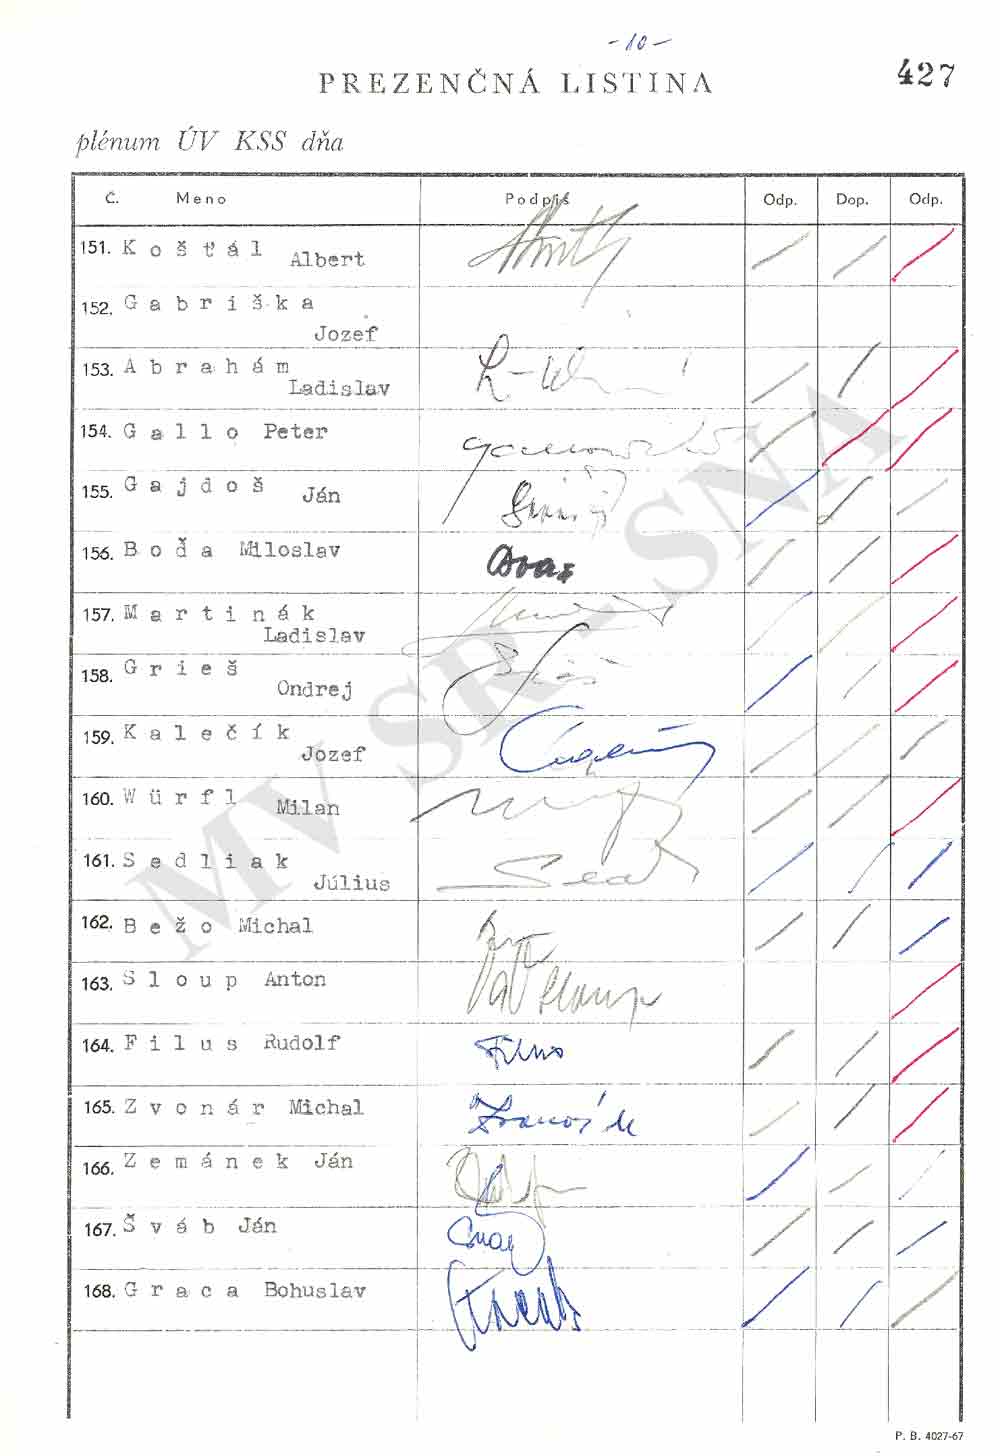 -10-
427
PREZENČNÁ LISTINA
plénum ÚV KSS dňa
Č. Meno Podpis Odp. Dop. Odp.
151. Košťál Albert
152. Gabriška
Jozef
153. Abrahám
Ladislav
154. Gallo Peter
155. Gajdoš Ján
156. Boďa Miloslav
157. Martinák
Ladislav
158. Grieš
Ondrej
159. Kalečík
Jozef
160. Würfl Milan
161. Sedliak
Július
162. Bežo Michal
163. Sloup Anton
164. Filus Rudolf
Filus
165. Zvonár Michal
Zvonár M
166. Zemánek Ján
167. Šváb Ján
168. Graca Bohuslav
MV SR - SNA
P. B. 4027-67